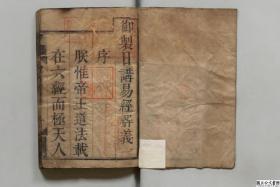 御製日講易經解義
序
朕惟帝王道法載
在六經而極天人